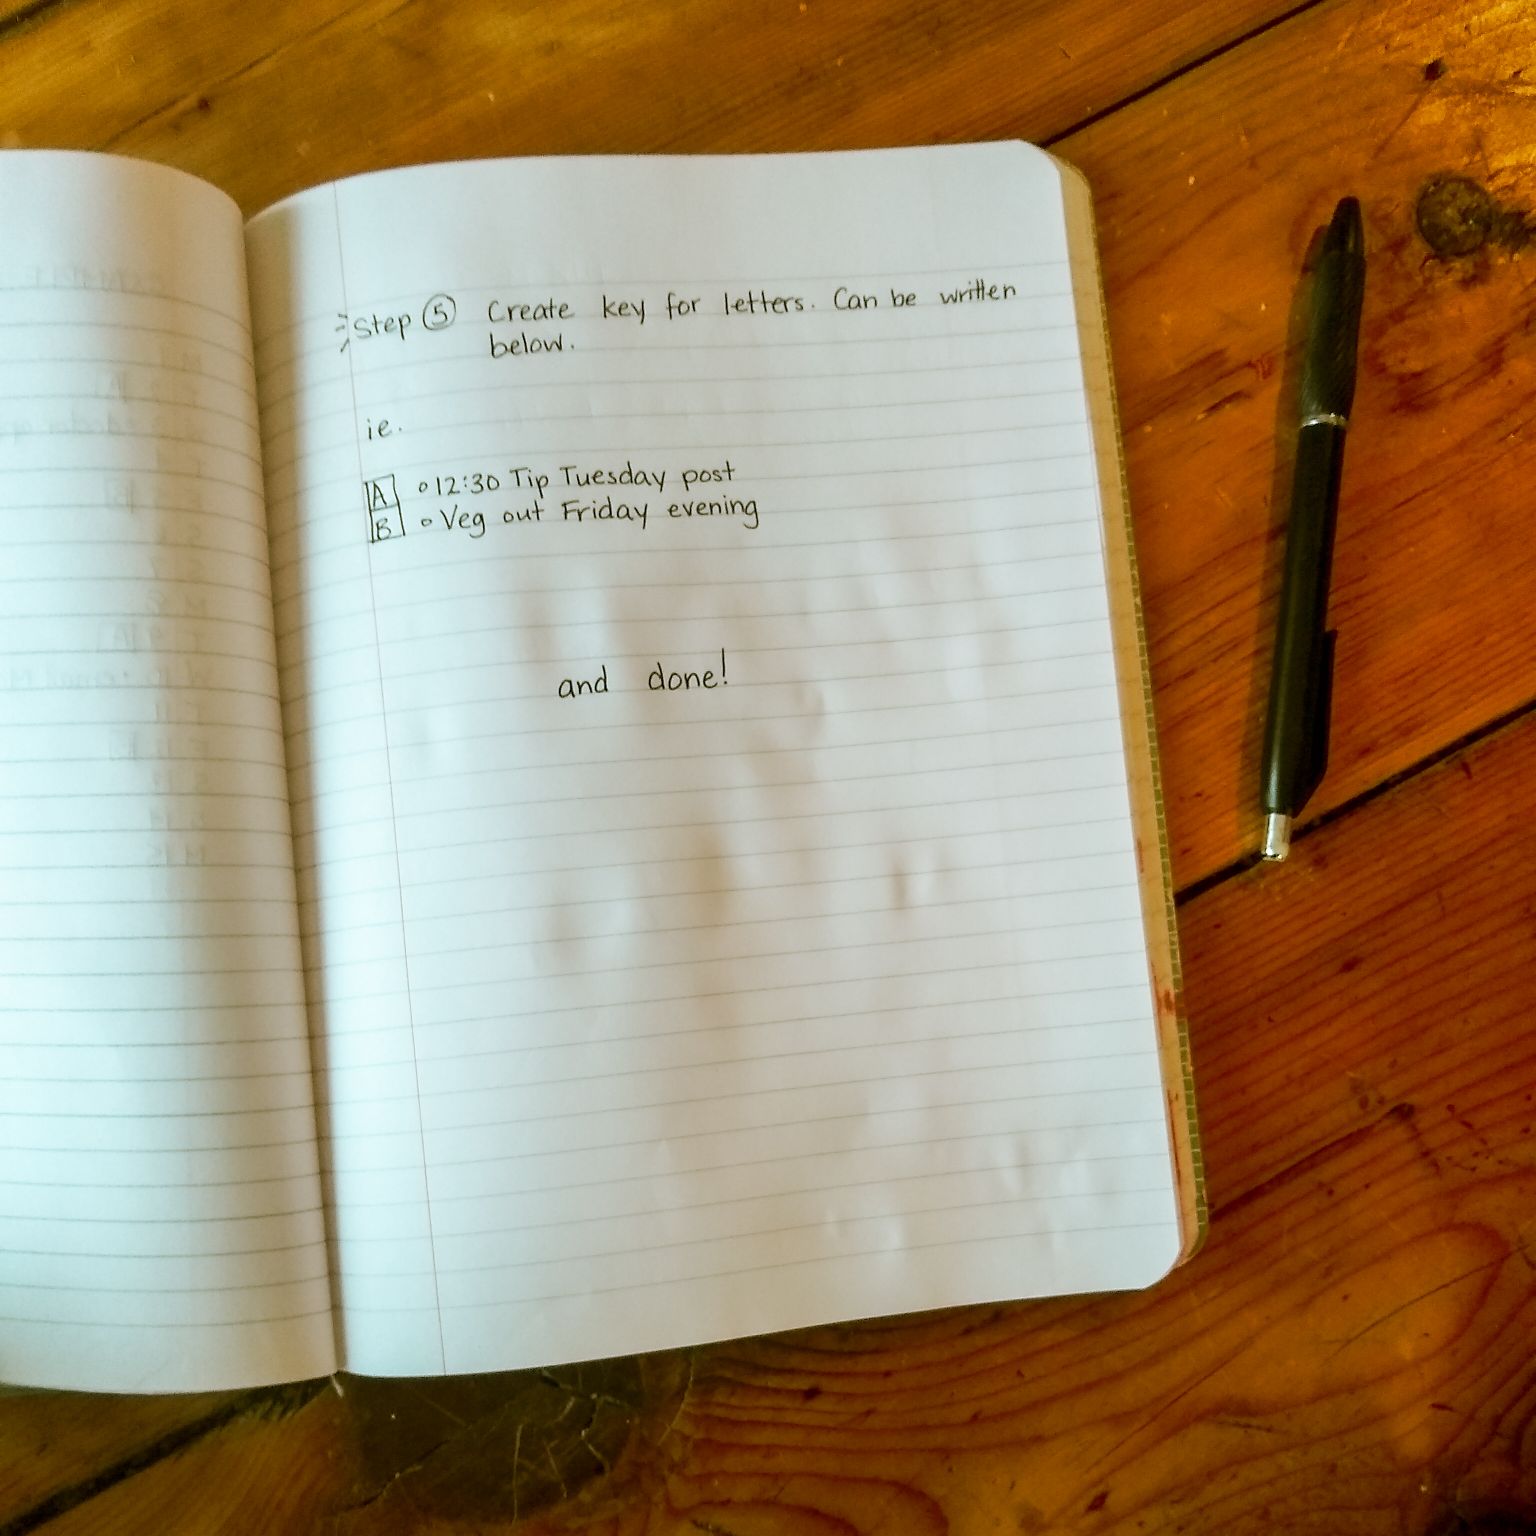 Step ⑤ Create key for letters. Can be written
below.
ie.
A ∘ 12:30 Tip Tuesday post
B ∘ Veg out Friday evening
and done!